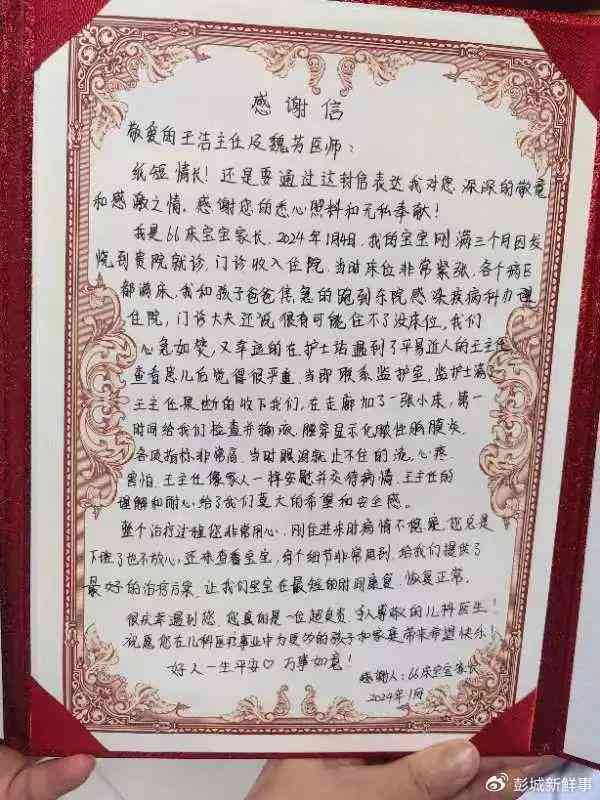 感谢信
敬爱的王浩主任及魏芳医师：
纸短情长！还是要通过这封信表达我对您深深的敬意
和感激之情。感谢您的悉心照料和无私奉献！
我是66床宝宝家长，2024年1月4日，我的宝宝刚满三个月因发
烧到贵院就诊，门诊收入住院，当时床位非常紧张，各个病区
都满床，我和孩子爸爸焦急的跑到东院感染疾病科办理
住院，门诊大夫还说很有可能住不了没床位，我们
心急如焚，又幸运的在护士站遇到了平易近人的王主任
查看患儿后觉得很严重，当即联系监护室，监护室满了
王主任果断的收下我们，在走廊加了一张小床，第一
时间给我们检查并输液，腰穿显示化脓性脑膜炎，
各项指标非常高，当时眼泪就止不住的流，心疼
害怕，王主任像家人一样安慰并交待病情，王主任的
理解和耐心，给了我们莫大的希望和安全感。
整个治疗过程您非常用心，刚住进来时病情不稳定，您总是
下班了也不放心，还来查看宝宝，每个细节非常周到，给我们提供了
最好的治疗方案，让我们宝宝在最短的时间康复，恢复正常。
很庆幸遇到您，您真的是一位超负责，令人尊敬的儿科医生！
祝愿您在儿科医疗事业中为更多的孩子和家庭带来希望快乐！
好人一生平安♡ 万事如意！
感谢人：66床宝宝家长
2024年1月
彭城新鲜事